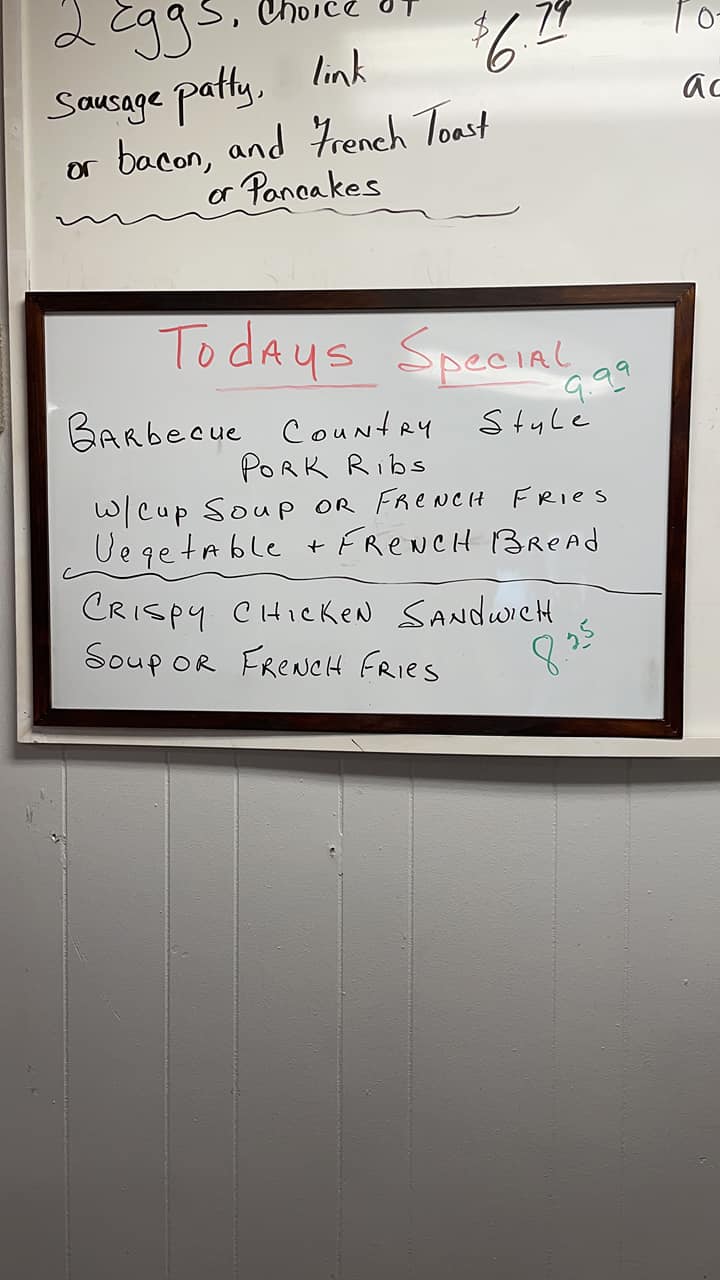 2 Eggs, Choice of $6.79
Sausage patty, link
or bacon, and French Toast
or Pancakes
Todays Special
9.99
Barbecue Country Style
Pork Ribs
w/cup Soup or French Fries
Vegetable + French Bread
Crispy Chicken Sandwich
8.25
Soup or French Fries